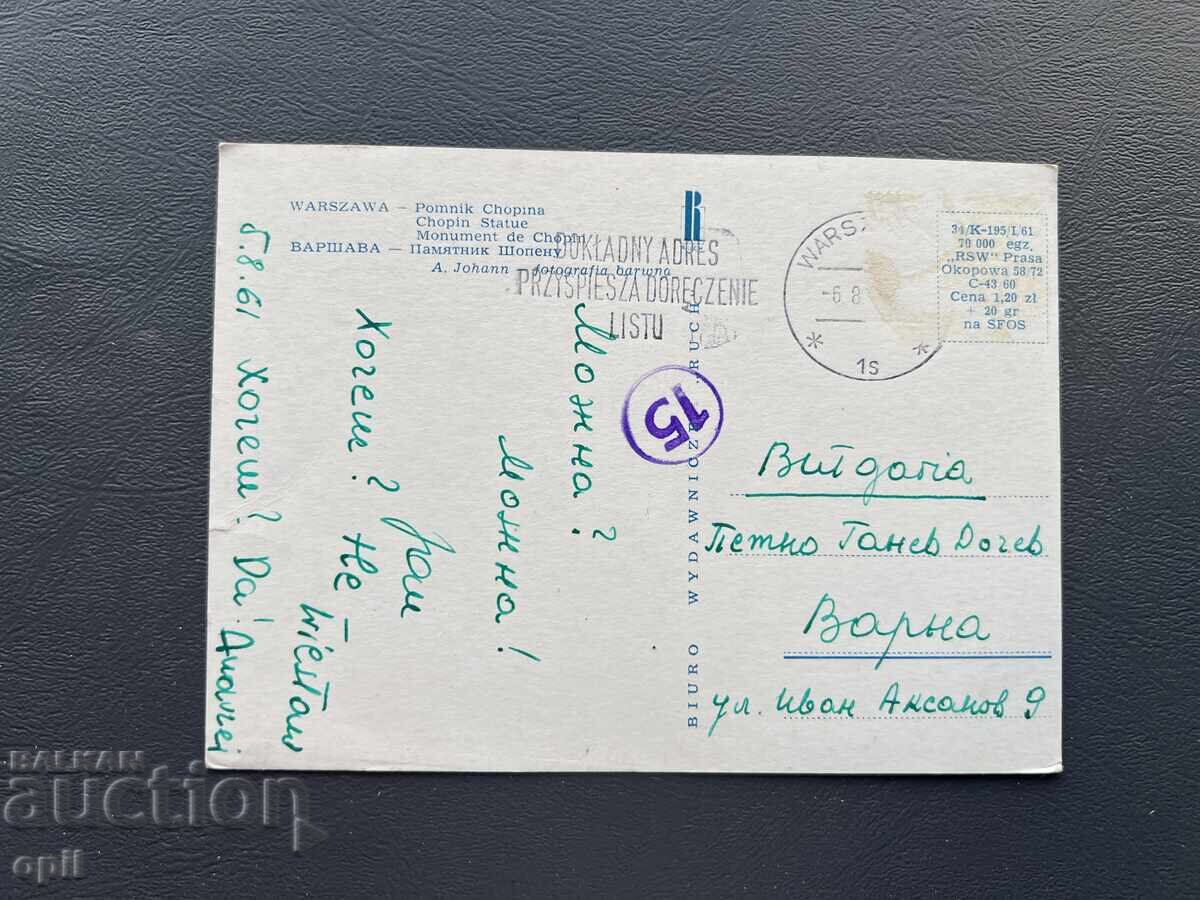 WARSZAWA — Pomnik Chopina
Chopin Statue
Monument de Chopin
ВАРШАВА — Памятник Шопену
A. Johann fotografia barwna
DOKŁADNY ADRES
PRZYSPIESZA DORĘCZENIE
LISTU
WARS
-6.8
1s
34/K-195/I/61
70 000 egz.
„RSW" Prasa
Okopowa 58/72
C-43 60
Cena 1,20 zł
+ 20 gr
na SFOS
BIURO WYDAWNICZE „RUCH"
15
Можна?
Можна!
Хочеш? Не —
Wiesław
5.8.61 Хочеш? Да!
Bułgaria
Петно Ганев Дочев
Варна
ул. Иван Аксаков 9
BALKAN
auction
opil